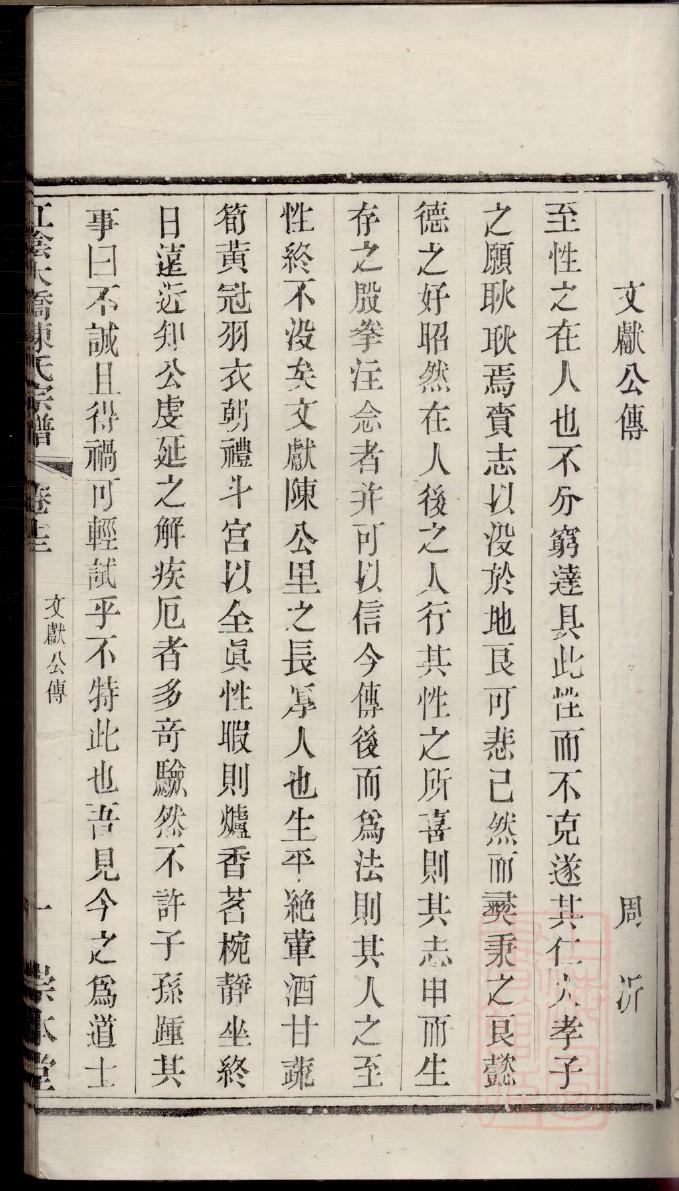 文獻公傳 周沂
至性之在人也不分窮達具此性而不克遂其仁人孝子
之願耿耿焉賫志以没於地良可悲已然而彞秉之良懿
德之好昭然在人後之人行其性之所喜則其志申而生
存之殷拳注念者并可以信今傳後而爲法則其人之至
性終不没矣文獻陳公里之長厚人也生平絶葷酒甘蔬
筍黃冠羽衣朝禮斗宮以全眞性暇則爐香茗椀靜坐終
日遠近知公虔延之解疾厄者多竒驗然不許子孫踵其
事曰不誠且得禍可輕試乎不特此也吾見今之爲道士
江陰大橋陳氏宗譜 卷 文獻公傳 一 崇本堂